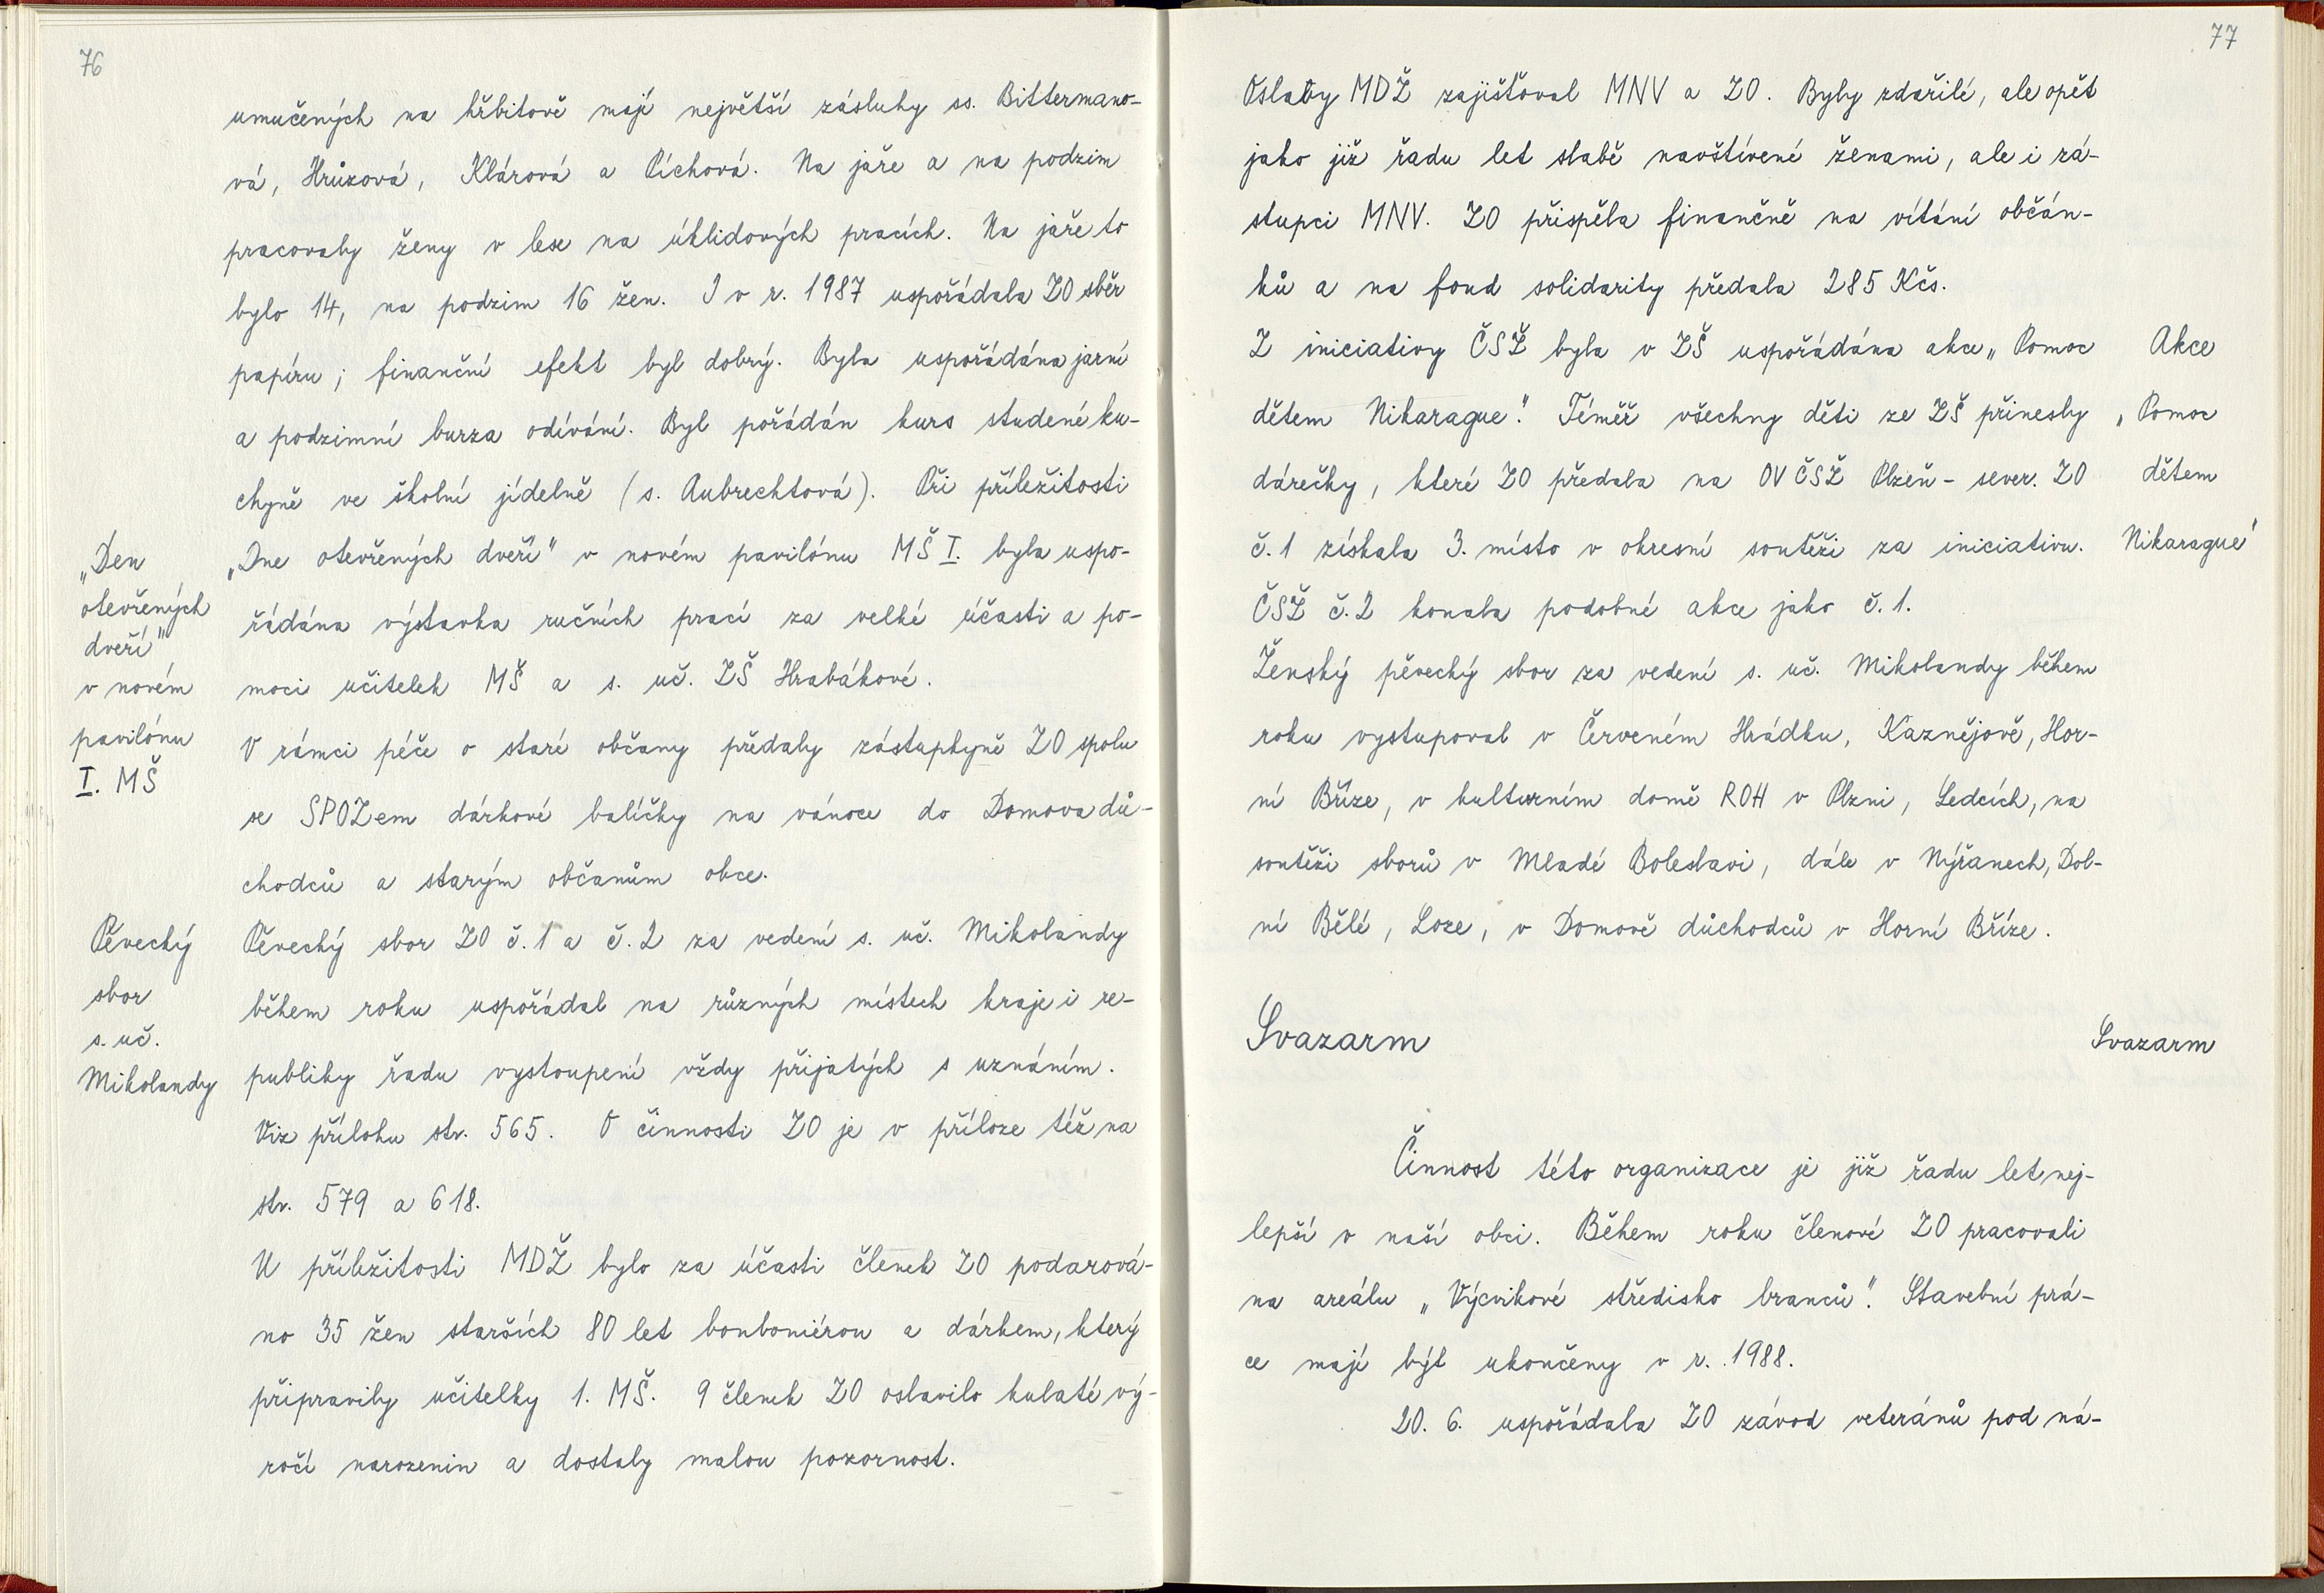 76
umučených na hřbitově mají největší zásluhy ss. Bittermano-
vá, Hrůzová, Klárová a Píchová. Na jaře a na podzim
pracovaly ženy v lese na úklidových pracích. Na jaře to
bylo 14, na podzim 16 žen. I v r. 1987 uspořádala ZO sběr
papíru; finanční efekt byl dobrý. Byla uspořádána jarní
a podzimní burza odívání. Byl pořádán kurs studené ku-
chyně ve školní jídelně (s. Aubrechtová). Při příležitosti
„Dne otevřených dveří" v novém pavilónu MŠ I. byla uspo-
řádána výstavka ručních prací za velké účasti a po-
moci učitelek MŠ a s. uč. ZŠ Hrabákové.
V rámci péče o staré občany předaly zástupkyně ZO spolu
se SPOZem dárkové balíčky na vánoce do Domova dů-
chodců a starým občanům obce.
Pěvecký sbor ZO č. 1 a č. 2 za vedení s. uč. Mikolandy
během roku uspořádal na různých místech kraje i re-
publiky řadu vystoupení vždy přijatých s uznáním.
Viz přílohu str. 565. O činnosti ZO je v příloze též na
str. 579 a 618.
U příležitosti MDŽ bylo za účasti členek ZO podarová-
no 35 žen starších 80 let bonboniérou a dárkem, který
připravily učitelky 1. MŠ. 9 členek ZO oslavilo kulaté vý-
ročí narozenin a dostaly malou pozornost.
„Den
otevřených
dveří"
v novém
pavilónu
I. MŠ
Pěvecký
sbor
s. uč.
Mikolandy
77
Oslavy MDŽ zajišťoval MNV a ZO. Byly zdařilé, ale opět
jako již řadu let slabě navštívené ženami, ale i zá-
stupci MNV. ZO přispěla finančně na vítání občán-
ků a na fond solidarity předala 285 Kčs.
Z iniciativy ČSŽ byla v ZŠ uspořádána akce „Pomoc
dětem Nikarague". Téměř všechny děti ze ZŠ přinesly
dárečky, které ZO předala na OV ČSŽ Plzeň - sever. ZO
č. 1 získala 3. místo v okresní soutěži za iniciativu.
ČSŽ č. 2 konala podobné akce jako č. 1.
Ženský pěvecký sbor za vedení s. uč. Mikolandy během
roku vystupoval v Červeném Hrádku, Kaznějově, Hor-
ní Bříze, v kulturním domě ROH v Plzni, Ledcích, na
soutěži sborů v Mladé Boleslavi, dále v Nýřanech, Dol-
ní Bělé, Loze, v Domově důchodců v Horní Bříze.
Svazarm
Činnost této organizace je již řadu let nej-
lepší v naší obci. Během roku členové ZO pracovali
na areálu „Výcvikové středisko branců". Stavební prá-
ce mají být ukončeny v r. 1988.
20. 6. uspořádala ZO závod veteránů pod ná-
Akce
„Pomoc
dětem
Nikarague"
Svazarm